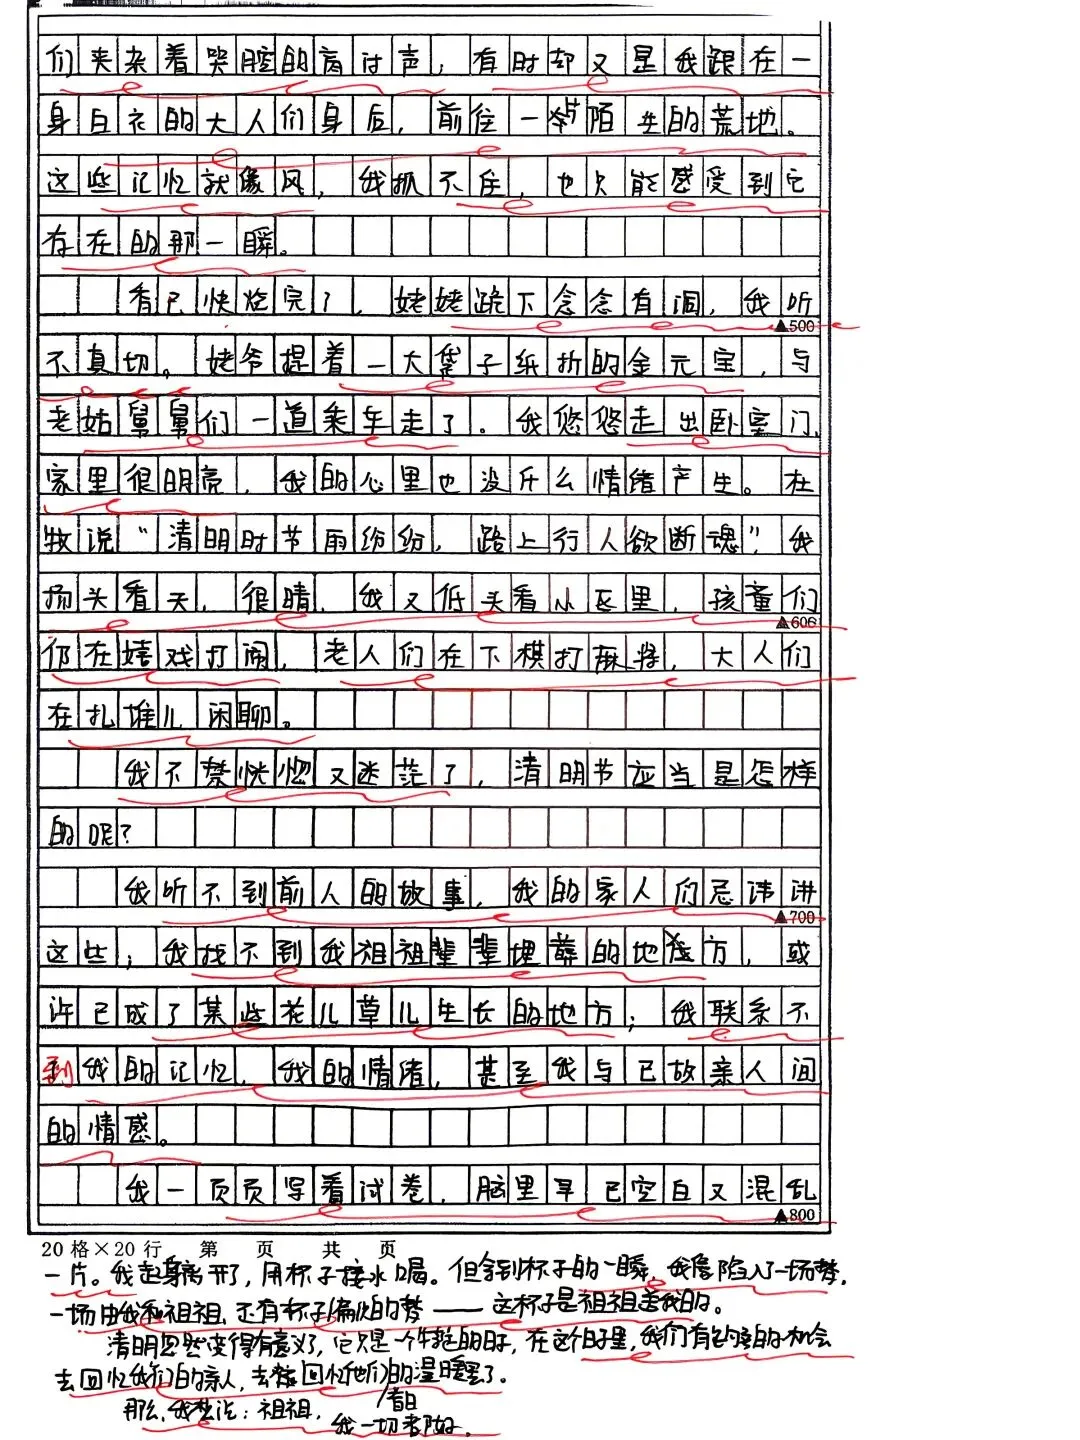 们夹杂着哭腔的商讨声；有时却又是我跟在一
身白衣的大人们身后，前往一处陌生的荒地。
这些记忆就像风，我抓不住，也只能感受到它
存在的那一瞬。
香已快烧完了，姥姥跪下念念有词，我听
▲500
不真切。姥爷提着一大袋子纸折的金元宝，与
老姑舅舅们一道乘车走了。我悠悠走出卧室门，
家里很明亮，我的心里也没什么情绪产生。杜
牧说“清明时节雨纷纷，路上行人欲断魂”，我
扬头看天，很晴，我又低头看小区里，孩童们
▲600
仍在嬉戏打闹，老人们在下棋打麻将，大人们
在扎堆儿闲聊。
我不禁恍惚又迷茫了，清明节应当是怎样
的呢？
我听不到前人的故事，我的家人们忌讳讲
▲700
这些；我找不到我祖祖辈辈埋葬的地方，或
许已成了某些花儿草儿生长的地方；我联系不
到我的记忆，我的情绪，甚至我与已故亲人间
的情感。
我一页页写着试卷，脑里早已空白又混乱
▲800
20格×20行 第 页 共 页
一片。我起身离开了，用杯子接水喝。但拿到杯子的一瞬，我像陷入了一场梦，
一场由我和祖祖，还有杯子编织的梦——这杯子是祖祖送我的。
清明忽然变得有意义了，它只是一个特定的日子，在这个日子里，我们有的机会
去回忆我们的亲人，去回忆他们的温暖了。
那么，我想说：祖祖，
我一切都好。